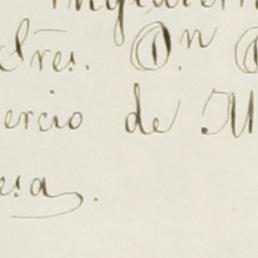 Sres. Dn
ercio de M
era.